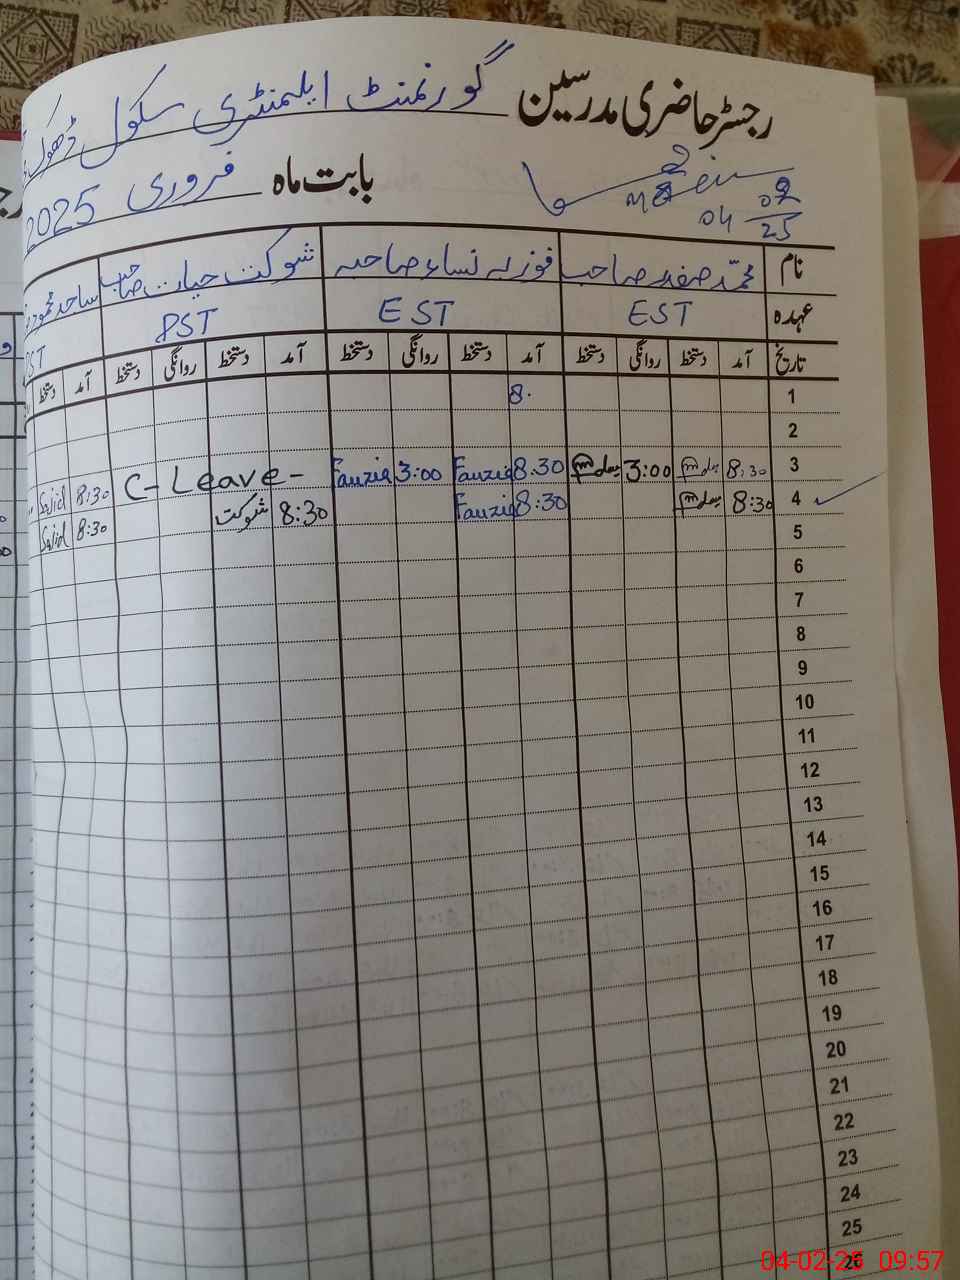 رجسٹر حاضری مدرسین گورنمنٹ ایلیمنٹری سکول ڈھوک
بابت ماہ فروری 2025
04 02 25
نام محمد صفدر صاحب فوزیہ نساء صاحبہ شوکت حیات صاحب ساجد محمود
عہدہ EST EST PST ST
تاریخ آمد دستخط روانگی دستخط آمد دستخط روانگی دستخط آمد دستخط روانگی دستخط آمد دستخط
1 8.
2
3 8:30 3:00 8.30 Fauzia 3:00 Fauzia C-Leave- 8:30 Sajid
4 8:30 8:30 Fauzia 8:30 شوکت 8:30 Sajid
5
6
7
8
9
10
11
12
13
14
15
16
17
18
19
20
21
22
23
24
25
26
04-02-25 09:57